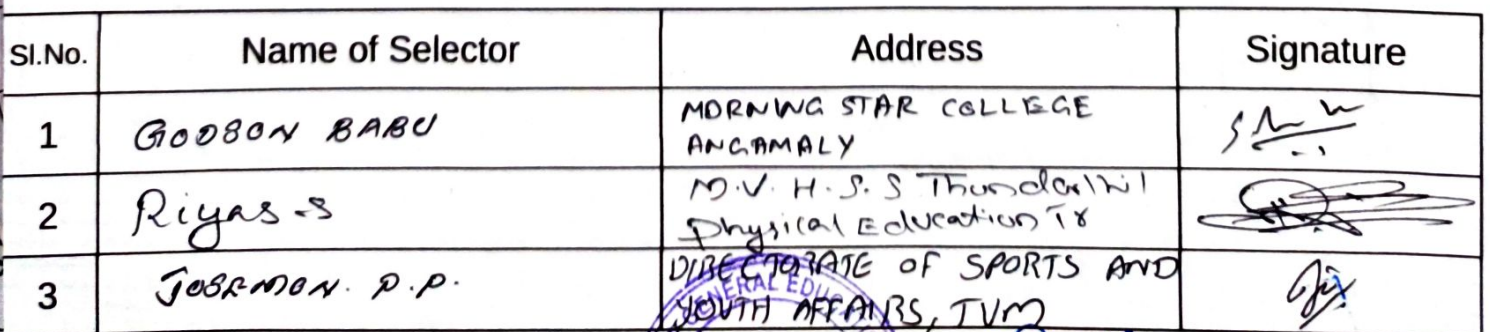 Sl.No. Name of Selector Address Signature
1 GODSON BABU MORNING STAR COLLEGE
ANGAMALY
2 Riyas.S M.V.H.S.S
Physical Education Tr
3 P.P. DIRECTORATE OF SPORTS AND
YOUTH AFFAIRS, TVM
GENERAL